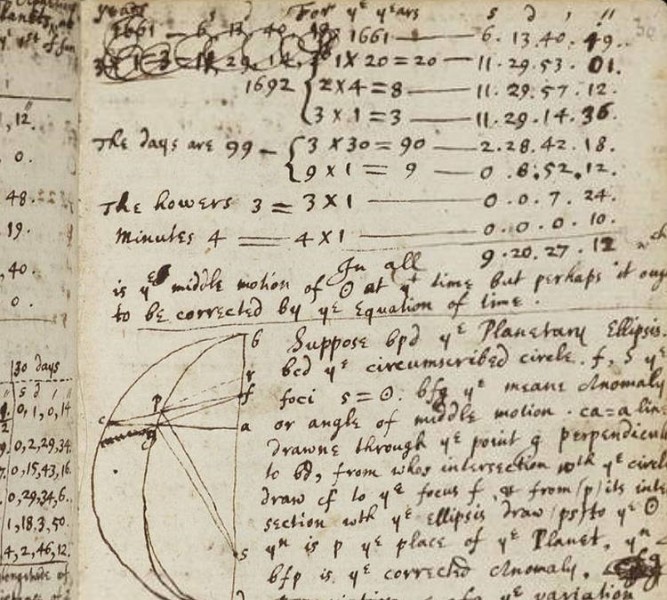 years s d For yᵉ years s d ' "
1661 — 6, 13, 40, 1661 — 6. 13. 40. 49.
1 X 20 = 20 — 11. 29. 53. 01.
1692 2 X 4 = 8 — 11. 29. 57. 12.
3 X 1 = 3 — 11. 29. 14. 36.
The days are 99 — 3 X 30 = 90 — 2. 28. 42. 18.
9 X 1 = 9 — 0. 8. 52. 12.
The howers 3 = 3 X 1 — 0. 0. 7. 24.
Minutes 4 = 4 X 1 — 0. 0. 0. 10.
In all 9. 20. 27. 12
is yᵉ middle motion of ☉ at yᵗ time but perhaps it oug
to be corrected by yᵉ Equation of time.
Suppose bpd yᵉ Planetary Ellipsis.
bcd yᵉ circumscribed circle. f, s yᵉ
foci s = ☉. bfg yᵉ meane Anomaly
or angle of middle motion. ca = a line
drawne through yᵉ point g perpendicul
to bd, from whos intersection wth yᵉ circl
draw cf to yᵉ focus f, from (p) its inte
section wth yᵉ Ellipsis draw (ps) to yᵉ ☉
yⁿ is p yᵉ place of yᵉ Planet, yⁿ
bfp is yᵉ corrected Anomaly.
yᵉ variation
b
r
f
c
p
g
a
s
d
, 12.
0.
48.
19.
, 40.
0.
30 days
s d '
0, 1, 0, 14
0, 2, 29, 34
0, 15, 43, 16
0, 29, 34, 6.
1, 18, 3, 50.
4, 2, 46, 12.
longitude of